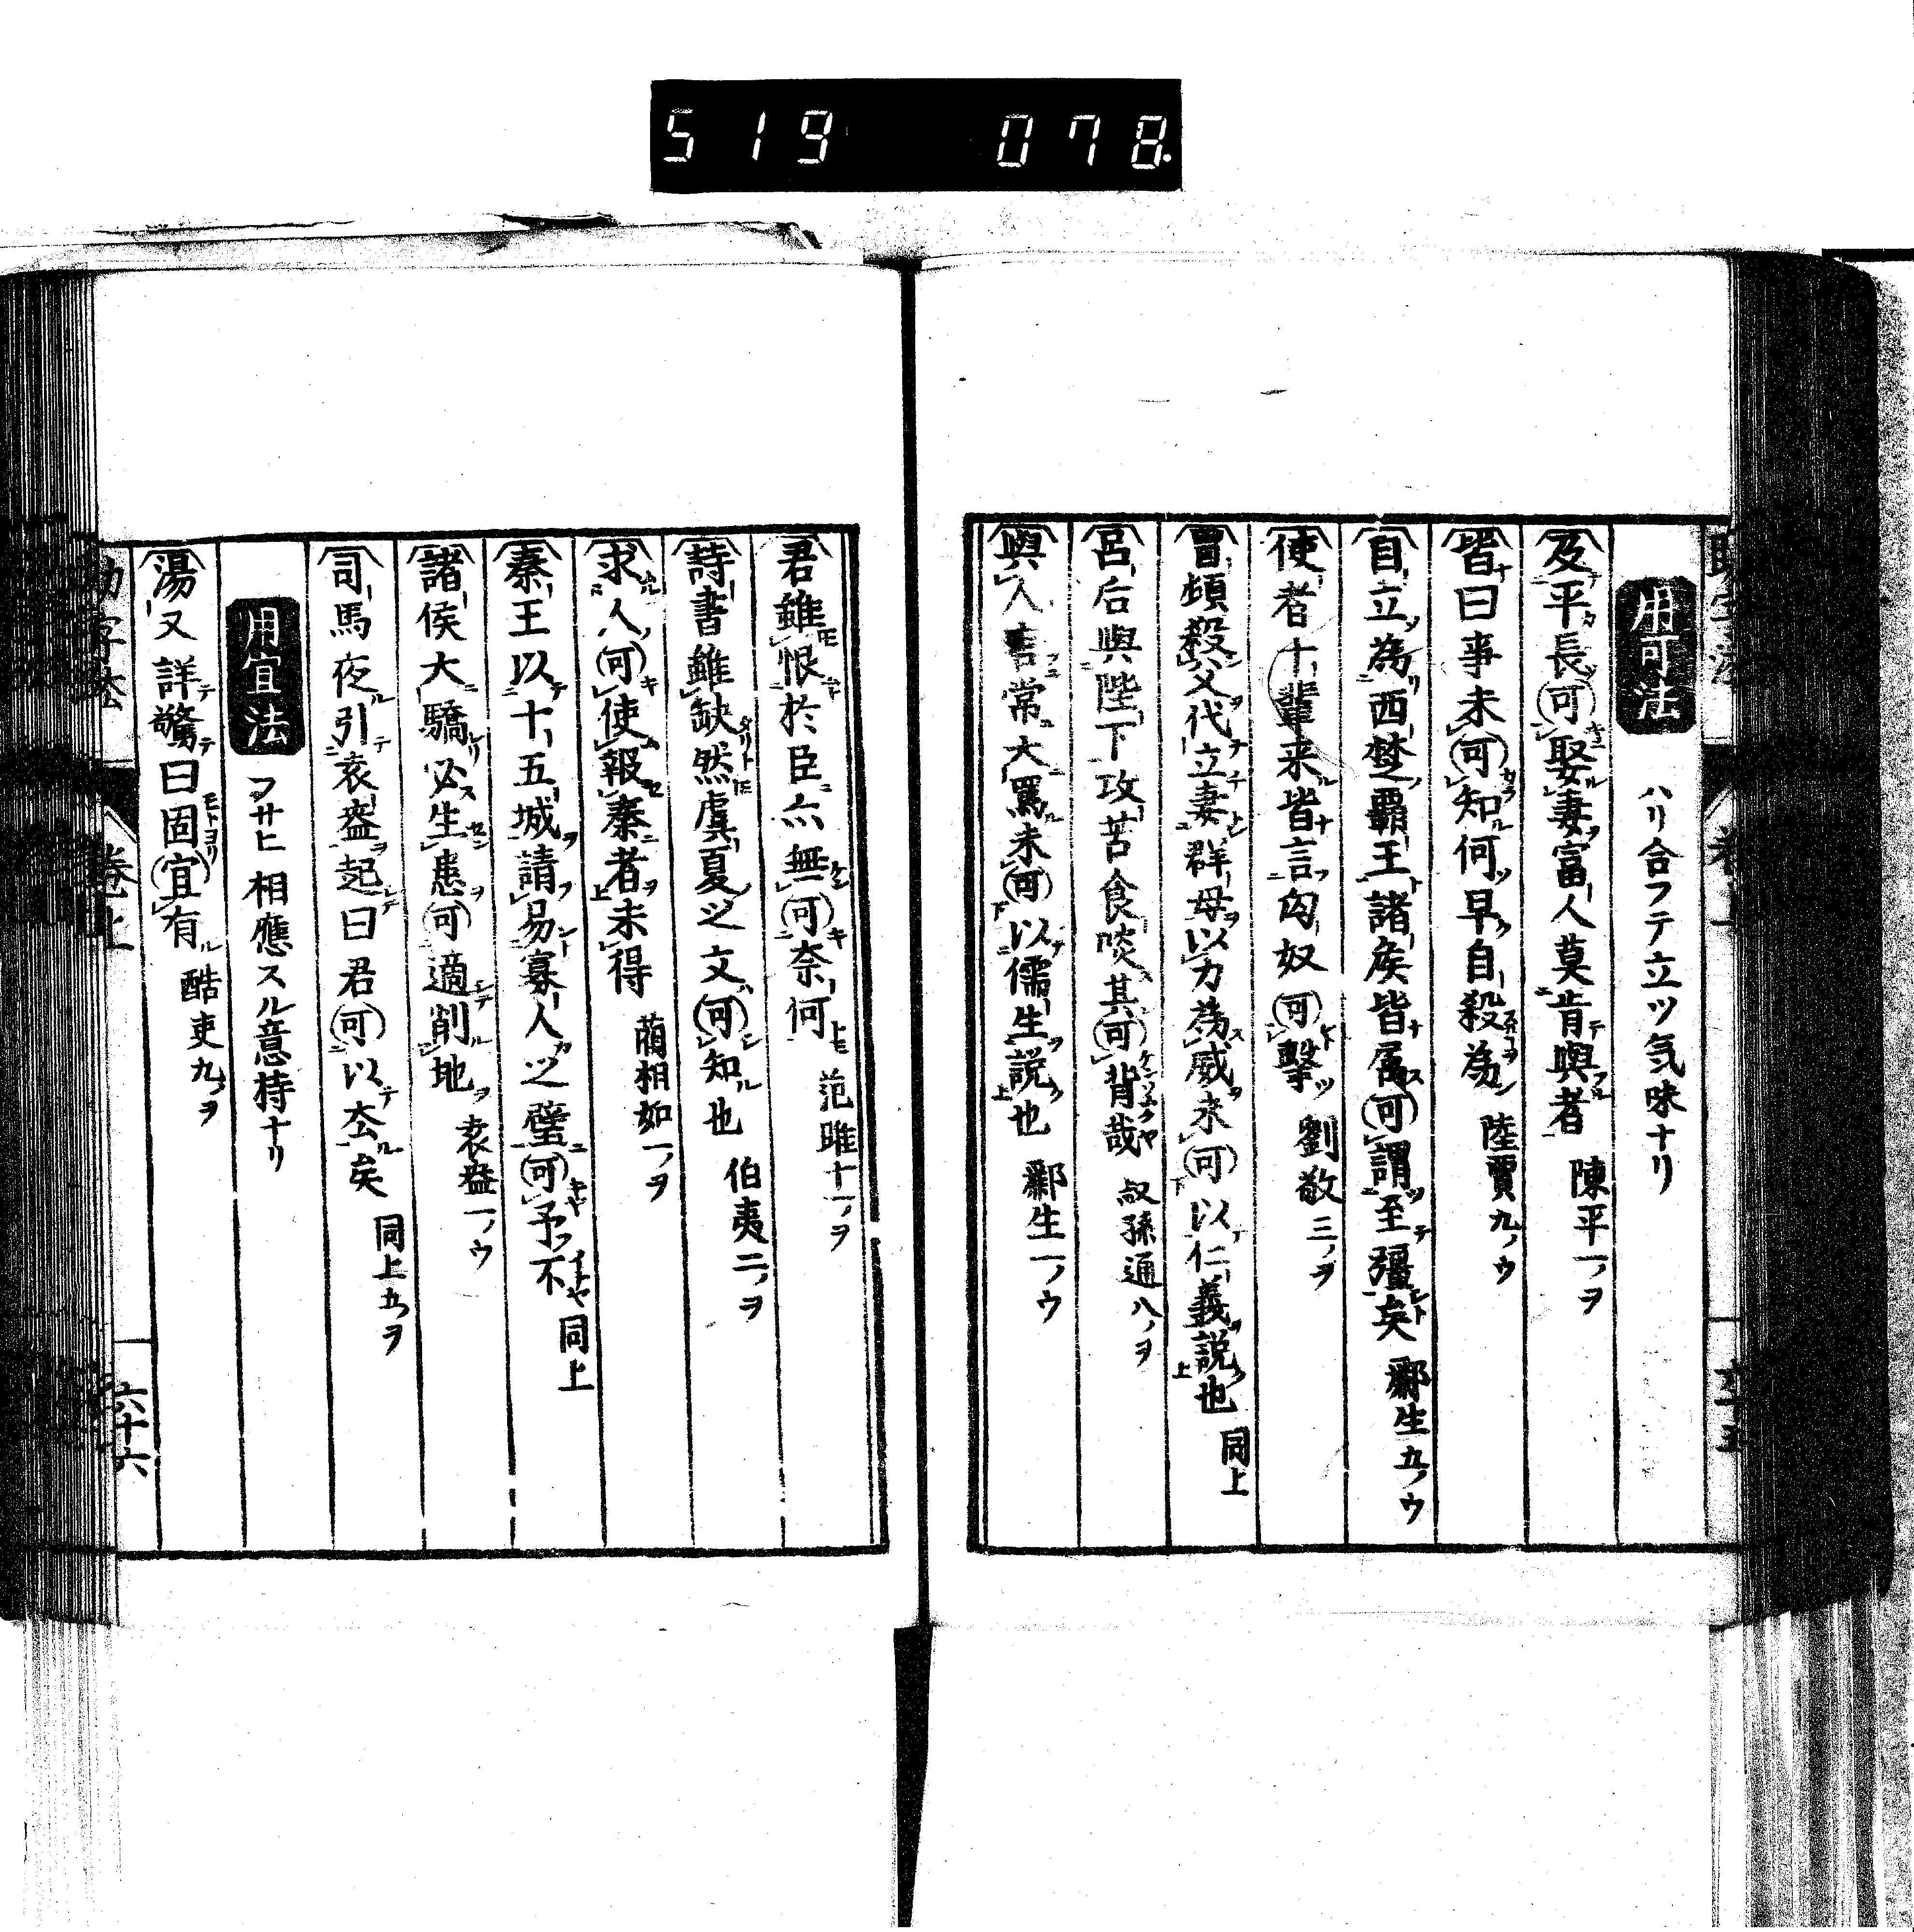 519 078.
用可法 ハリ合フテ立ツ気味ナリ
及平長可娶妻富人莫肯與者 陳平一ノヲ
皆曰事未可知何早自殺為 陸賈九ノウ
自立為西楚覇王諸矦皆属可謂至彊矣 酈生五ノウ
使者十輩来皆言匈奴可擊 劉敬三ノヲ
冒頓殺父代立妻群母以力為威未可以仁義説也 同上
呂后與陛下攻苦食啖其可背哉 叔孫通八ノヲ
與人言常大罵未可以儒生説也 酈生一ノウ
君雖恨於臣亦無可奈何 范雎十一ノヲ
詩書雖缺然虞夏之文可知也 伯夷二ノヲ
求人可使報秦者未得 藺相如一ノヲ
秦王以十五城請易寡人之璧可予不 同上
諸侯大驕必生患可適削地 袁盎一ノウ
司馬夜引袁盎起曰君可以去矣 同上五ノヲ
用宜法 ヲサヒ相應スル意持ナリ
湯又詳驚曰固宜有 酷吏九ノヲ
巻上
六十六